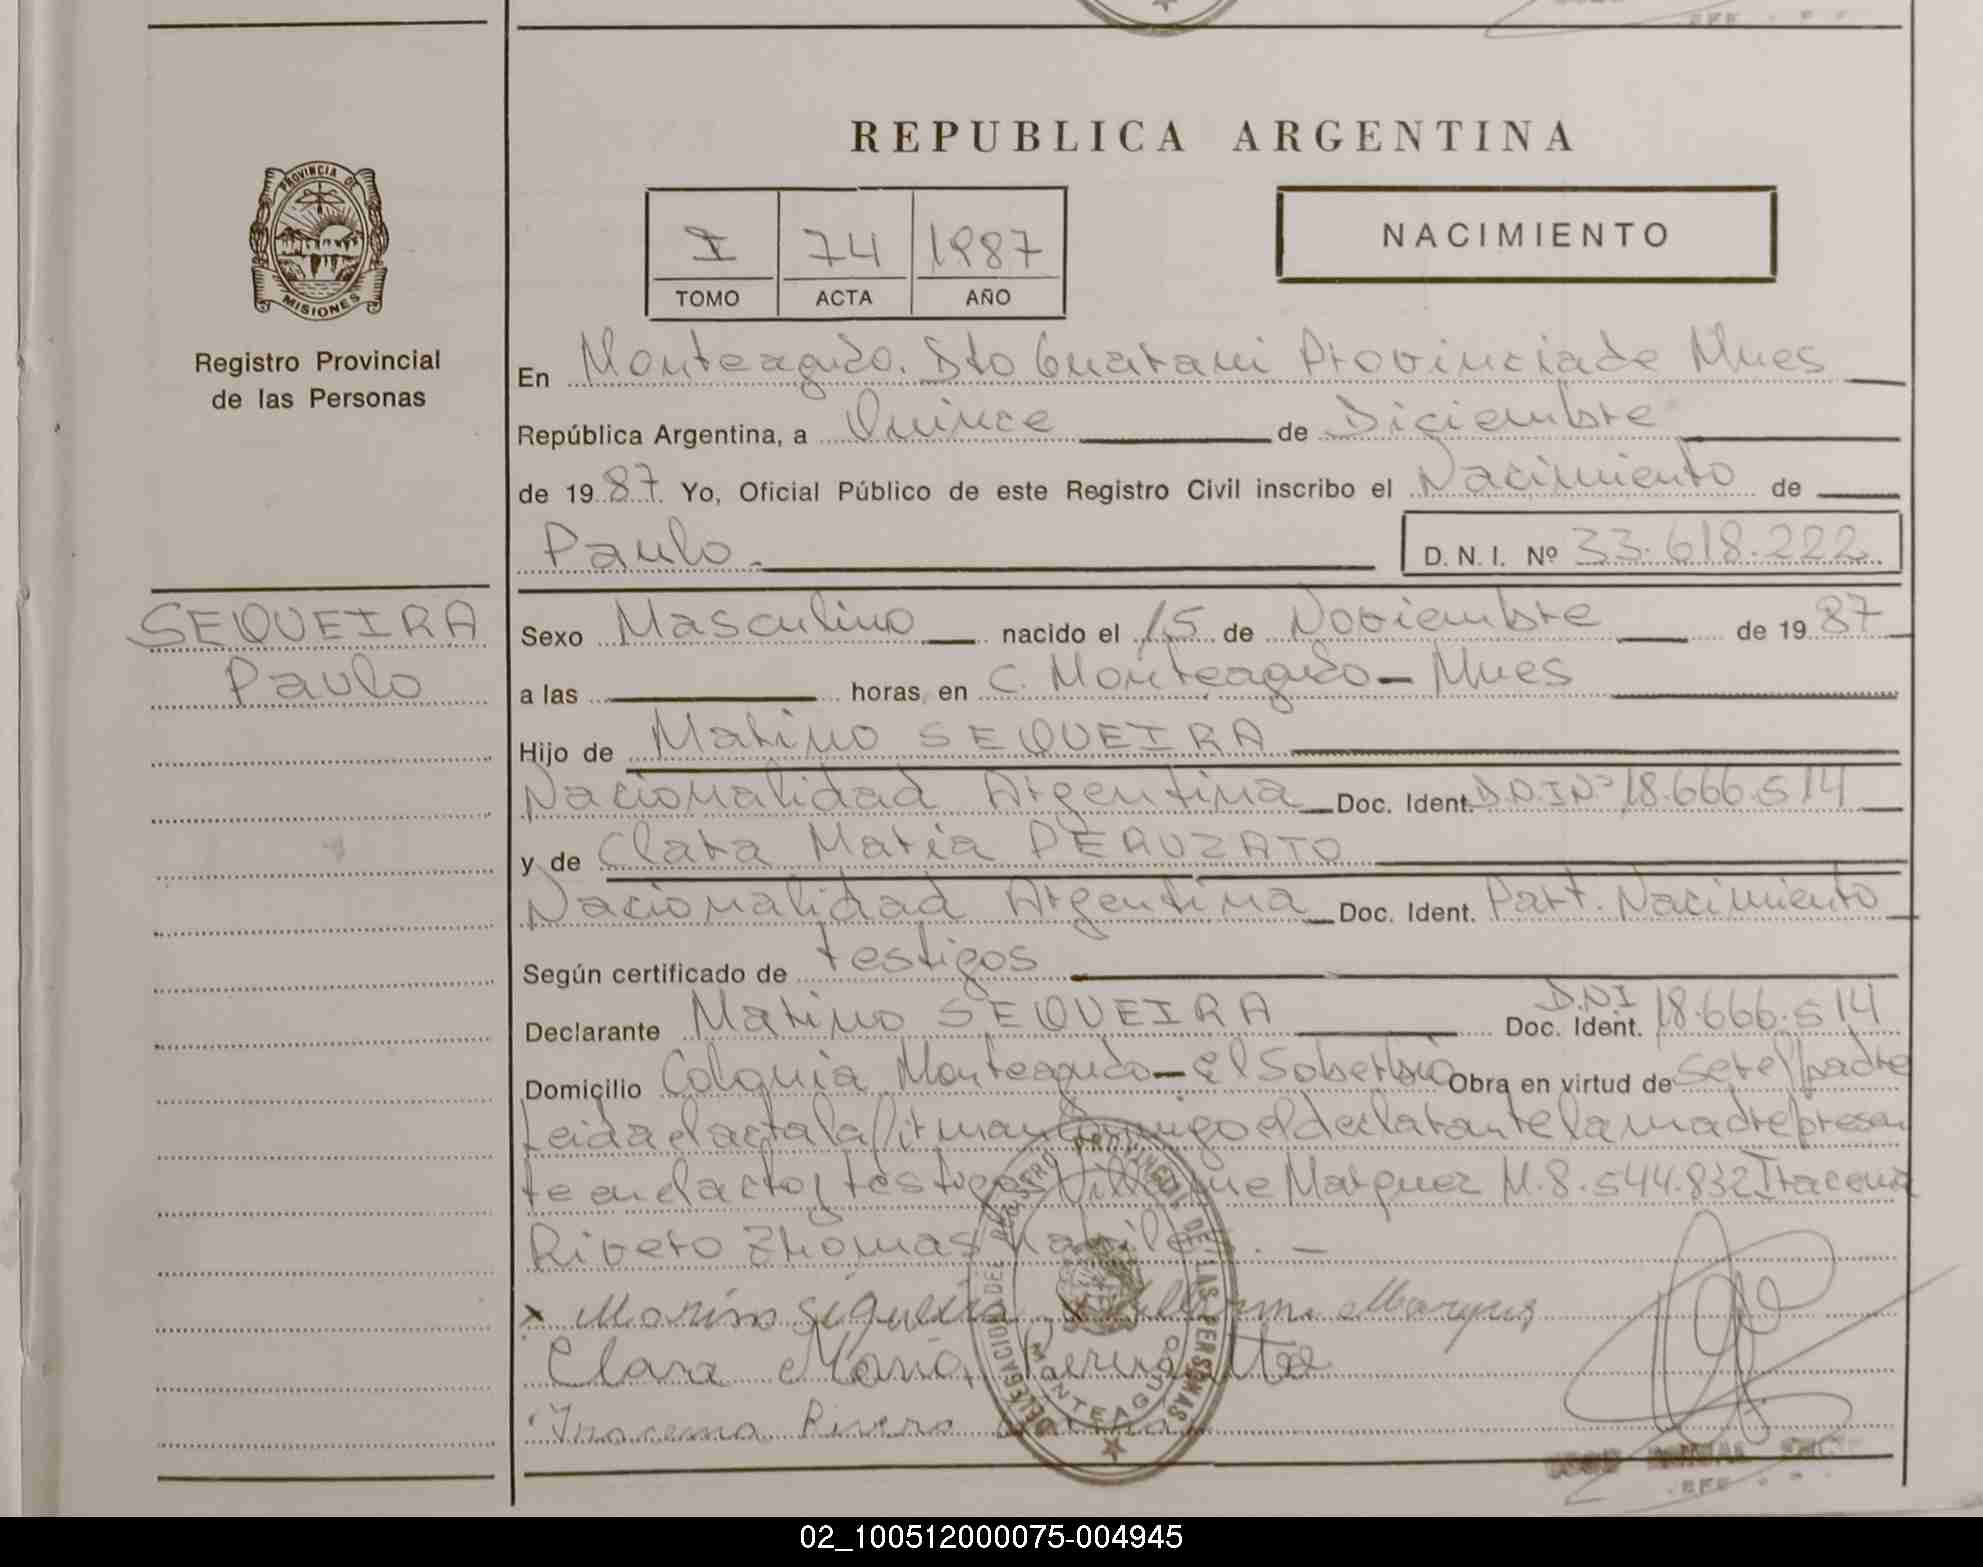 REPUBLICA ARGENTINA
PROVINCIA DE
MISIONES
Registro Provincial
de las Personas
I 74 1987
TOMO ACTA AÑO
NACIMIENTO
En Monteagudo. Dto Guarani Provincia de Mnes
República Argentina, a Quince de Diciembre
de 1987. Yo, Oficial Público de este Registro Civil inscribo el Nacimiento de
Paulo D. N. I. Nº 33.618.222
SEQUEIRA
Paulo
Sexo Masculino nacido el 15 de Noviembre de 1987
a las horas, en C. Monteagudo - Mnes
Hijo de Marino SEQUEIRA
Nacionalidad Argentina Doc. Ident. D.N.I Nº 18.666.514
y de Clara Maria PERUZATO
Nacionalidad Argentina Doc. Ident. Part. Nacimiento
Según certificado de testigos
Declarante Marino SEQUEIRA Doc. Ident. D.N.I 18.666.514
Domicilio Colonia Monteagudo - El Soberbio Obra en virtud de ser el padre
Leida el acta la firman conmigo el declarante la madre presen
te en el acto y testigos Marquez M.8.544.832 Iracema
Rivero
x Marino Siqueira x Marques
Clara Maria
Iracema Rivero
DELEGACION DEL REGISTRO PROVINCIAL DE LAS PERSONAS
MONTEAGUDO
02_100512000075-004945